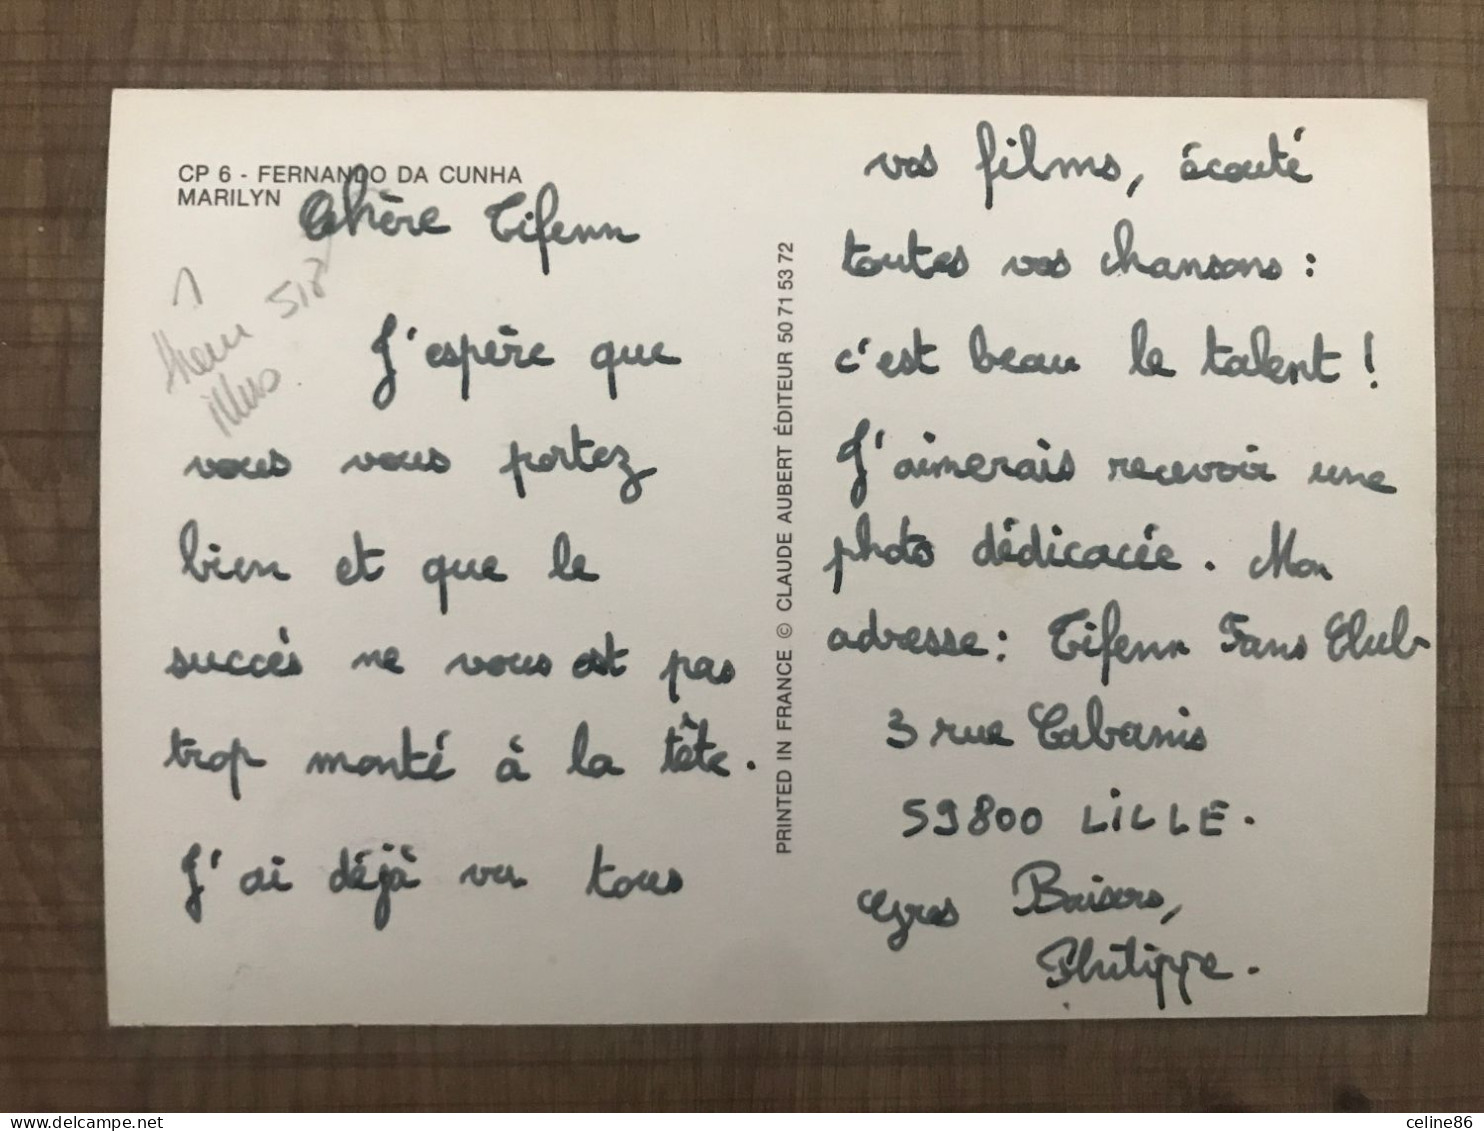 CP 6 - FERNANDO DA CUNHA
MARILYN
Chère Tifenn
J'espère que
vous vous portez
bien et que le
succès ne vous est pas
trop monté à la tête.
J'ai déjà vu tous
PRINTED IN FRANCE © CLAUDE AUBERT ÉDITEUR 50 71 53 72
vos films, écouté
toutes vos chansons :
c'est beau le talent !
J'aimerais recevoir une
photo dédicacée. Mon
adresse : Tifenn Fans Club
3 rue Cabanis
59800 LILLE.
Gros Baisers,
Philippe.
delcampe.net
celine86